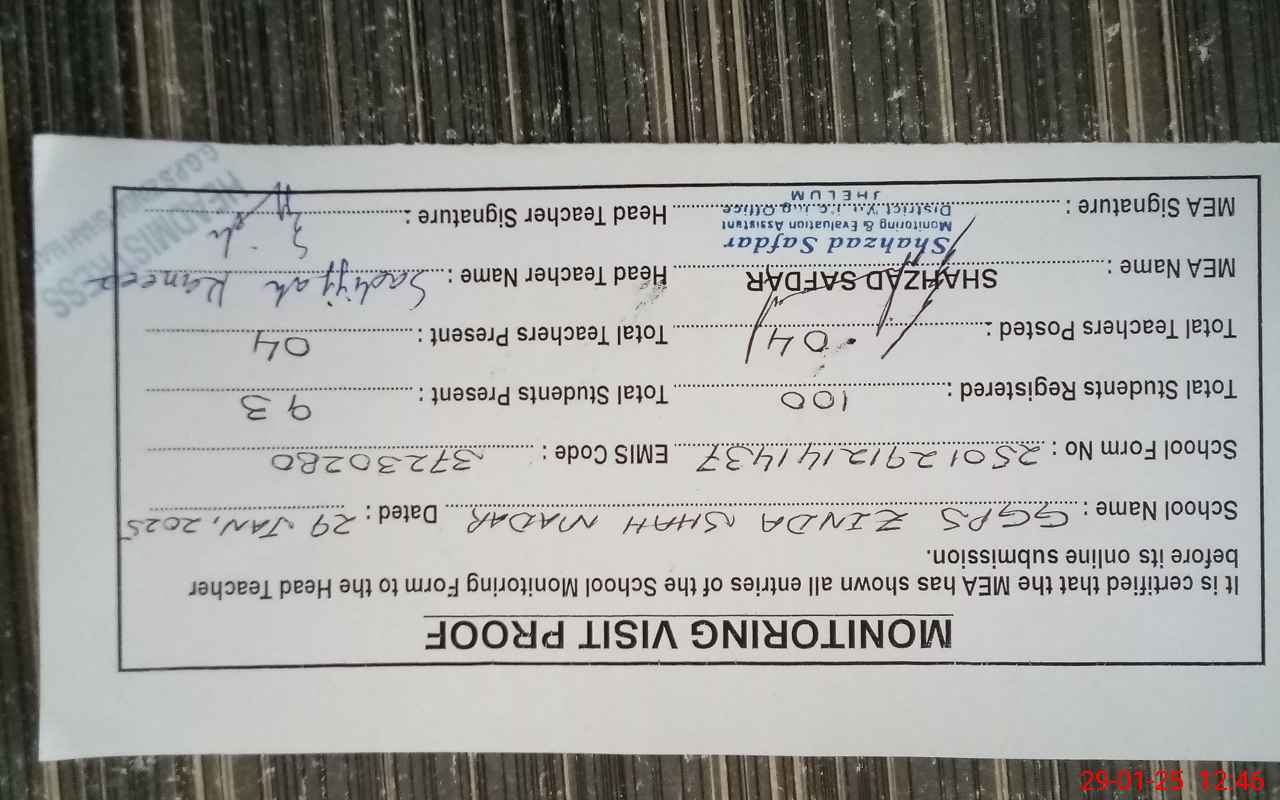 MONITORING VISIT PROOF
It is certified that the MEA has shown all entries of the School Monitoring Form to the Head Teacher
before its online submission.
School Name : GGPS ZINDA SHAH MADAR Dated : 29 JAN, 2025
School Form No : 25012912141437 EMIS Code : 37230280
Total Students Registered : 100 Total Students Present : 93
Total Teachers Posted : 04 Total Teachers Present : 04
MEA Name : SHAHZAD SAFDAR Head Teacher Name : Sadiyyah Kaneez
Shahzad Safdar
Monitoring & Evaluation Assistant
MEA Signature : Head Teacher Signature :
District Office
JHELUM
HEADMISTRESS
29-01-25 12:46